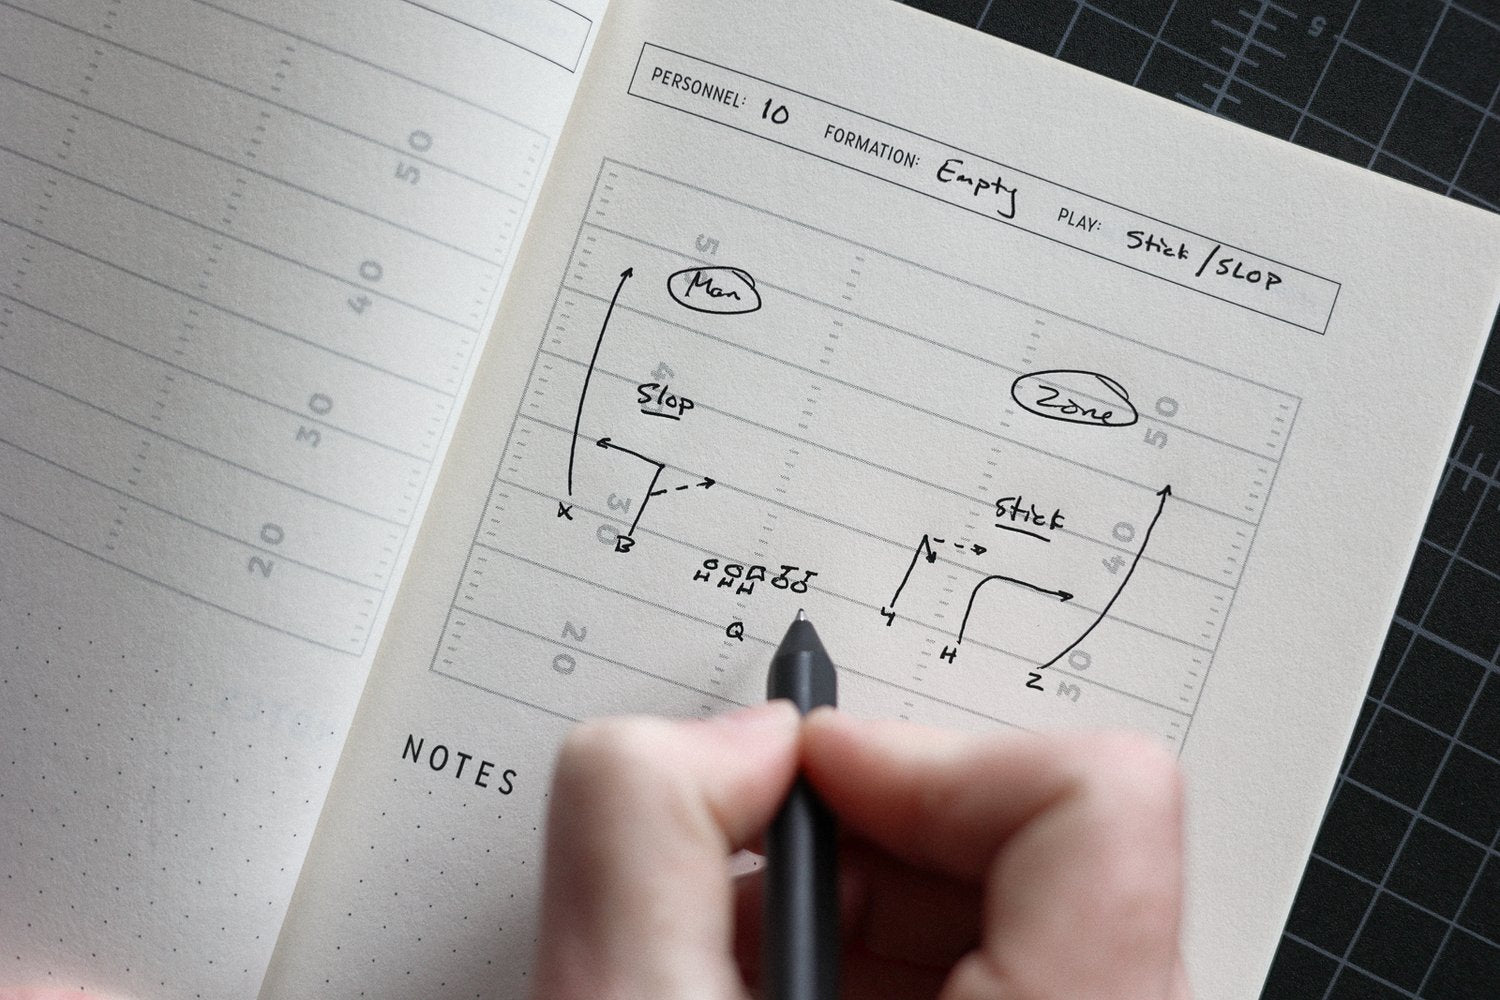 PERSONNEL: 10 FORMATION: Empty PLAY: Stick / SLOP
Man
Zone
Slop
Stick
X
B
Y
H
Z
Q
50
40
30
20
5
4
30
20
50
40
30
NOTES